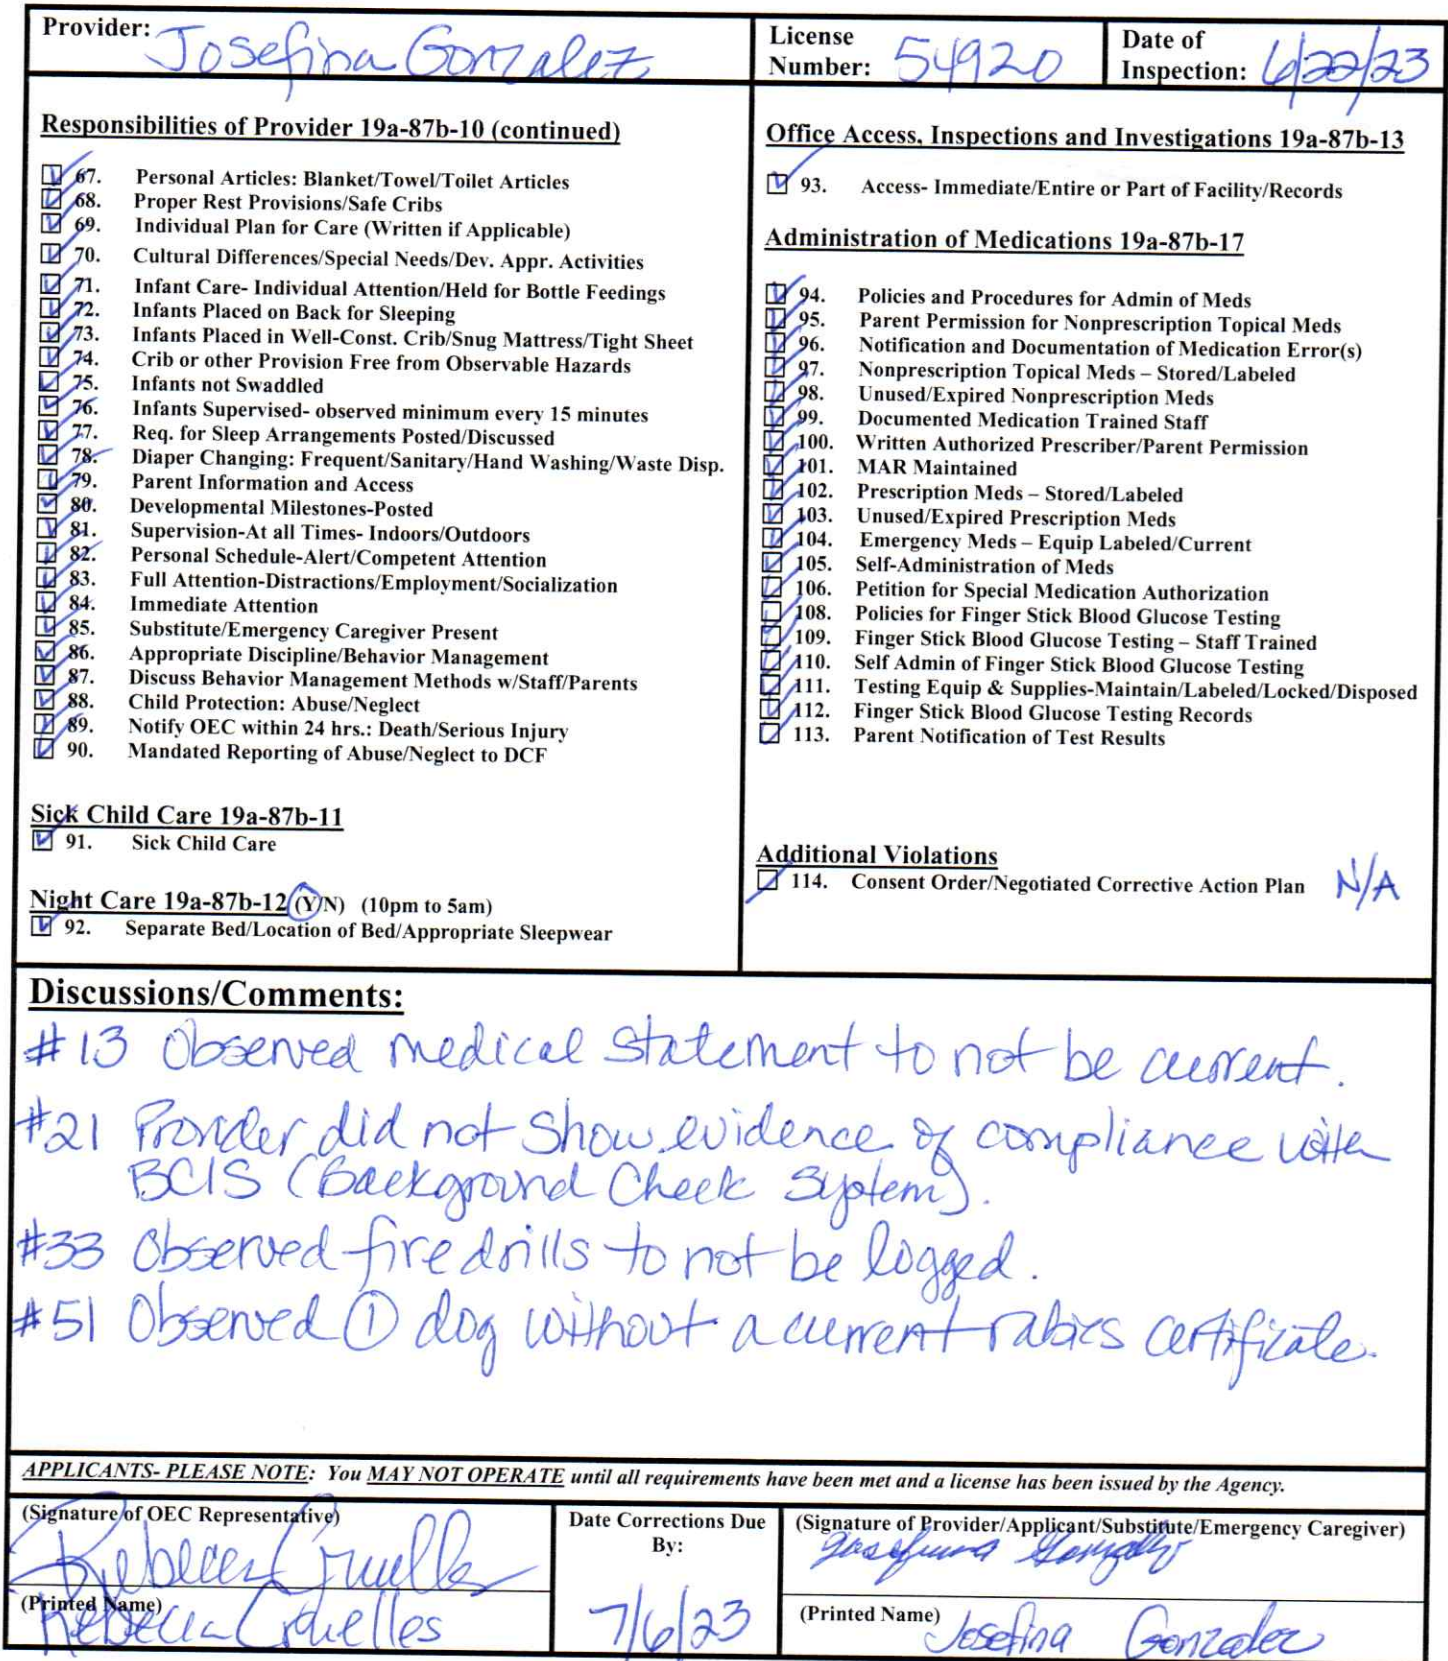 Provider: Josefina Gonzalez
License Number: 54920
Date of Inspection: 6/22/23
Responsibilities of Provider 19a-87b-10 (continued)
67. Personal Articles: Blanket/Towel/Toilet Articles
68. Proper Rest Provisions/Safe Cribs
69. Individual Plan for Care (Written if Applicable)
70. Cultural Differences/Special Needs/Dev. Appr. Activities
71. Infant Care- Individual Attention/Held for Bottle Feedings
72. Infants Placed on Back for Sleeping
73. Infants Placed in Well-Const. Crib/Snug Mattress/Tight Sheet
74. Crib or other Provision Free from Observable Hazards
75. Infants not Swaddled
76. Infants Supervised- observed minimum every 15 minutes
77. Req. for Sleep Arrangements Posted/Discussed
78. Diaper Changing: Frequent/Sanitary/Hand Washing/Waste Disp.
79. Parent Information and Access
80. Developmental Milestones-Posted
81. Supervision-At all Times- Indoors/Outdoors
82. Personal Schedule-Alert/Competent Attention
83. Full Attention-Distractions/Employment/Socialization
84. Immediate Attention
85. Substitute/Emergency Caregiver Present
86. Appropriate Discipline/Behavior Management
87. Discuss Behavior Management Methods w/Staff/Parents
88. Child Protection: Abuse/Neglect
89. Notify OEC within 24 hrs.: Death/Serious Injury
90. Mandated Reporting of Abuse/Neglect to DCF
Sick Child Care 19a-87b-11
91. Sick Child Care
Night Care 19a-87b-12 (Y/N) (10pm to 5am)
92. Separate Bed/Location of Bed/Appropriate Sleepwear
Office Access, Inspections and Investigations 19a-87b-13
93. Access- Immediate/Entire or Part of Facility/Records
Administration of Medications 19a-87b-17
94. Policies and Procedures for Admin of Meds
95. Parent Permission for Nonprescription Topical Meds
96. Notification and Documentation of Medication Error(s)
97. Nonprescription Topical Meds – Stored/Labeled
98. Unused/Expired Nonprescription Meds
99. Documented Medication Trained Staff
100. Written Authorized Prescriber/Parent Permission
101. MAR Maintained
102. Prescription Meds – Stored/Labeled
103. Unused/Expired Prescription Meds
104. Emergency Meds – Equip Labeled/Current
105. Self-Administration of Meds
106. Petition for Special Medication Authorization
108. Policies for Finger Stick Blood Glucose Testing
109. Finger Stick Blood Glucose Testing – Staff Trained
110. Self Admin of Finger Stick Blood Glucose Testing
111. Testing Equip & Supplies-Maintain/Labeled/Locked/Disposed
112. Finger Stick Blood Glucose Testing Records
113. Parent Notification of Test Results
Additional Violations
114. Consent Order/Negotiated Corrective Action Plan N/A
Discussions/Comments:
#13 Observed medical statement to not be current.
#21 Provider did not show evidence of compliance with
BCIS (Background Check System).
#33 Observed fire drills to not be logged.
#51 Observed 1 dog without a current rabies certificate.
APPLICANTS- PLEASE NOTE: You MAY NOT OPERATE until all requirements have been met and a license has been issued by the Agency.
(Signature of OEC Representative)
Rebecca Cruelles
(Printed Name)
Rebecca Cruelles
Date Corrections Due By:
7/6/23
(Signature of Provider/Applicant/Substitute/Emergency Caregiver)
Josefina Gonzalez
(Printed Name) Josefina Gonzalez